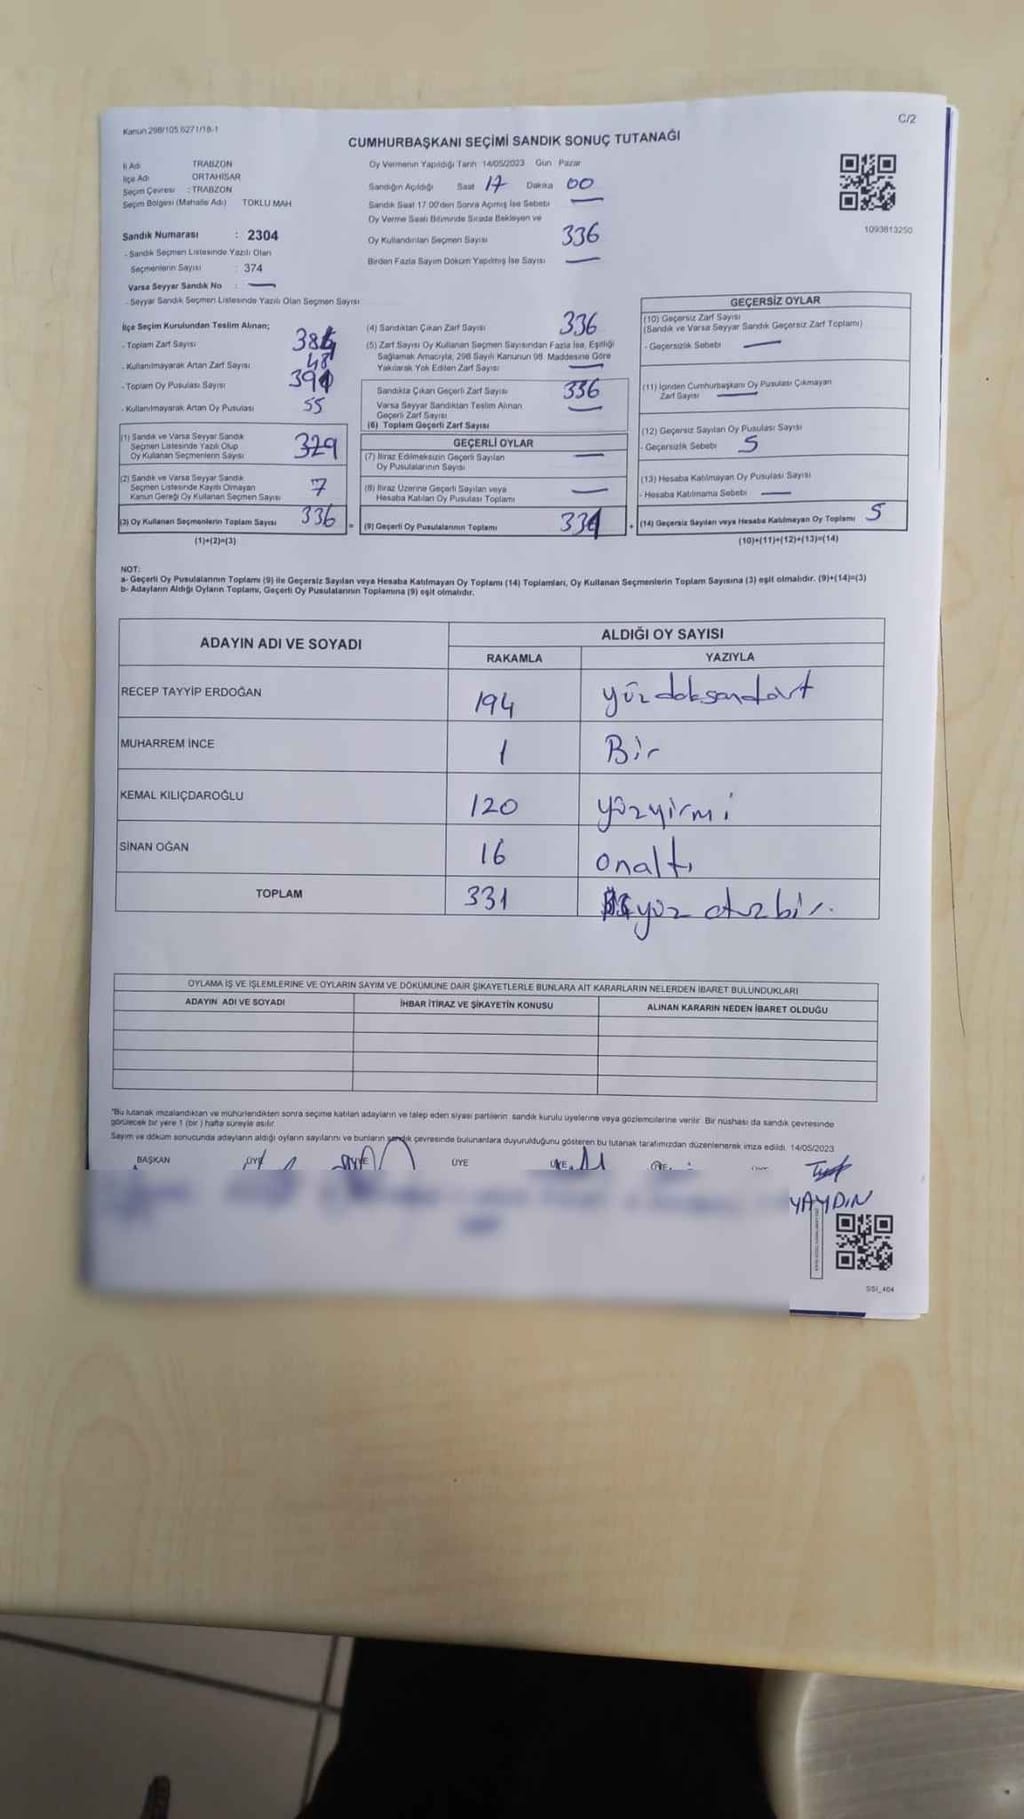 Kanun 298/105.6271/18-1
C/2
CUMHURBAŞKANI SEÇİMİ SANDIK SONUÇ TUTANAĞI
İl Adı TRABZON
İlçe Adı ORTAHİSAR
Seçim Çevresi : TRABZON
Seçim Bölgesi (Mahalle Adı) TOKLU MAH
Sandık Numarası : 2304
- Sandık Seçmen Listesinde Yazılı Olan
Seçmenlerin Sayısı : 374
Varsa Seyyar Sandık No : —
- Seyyar Sandık Seçmen Listesinde Yazılı Olan Seçmen Sayısı
Oy Vermenin Yapıldığı Tarih 14/05/2023 Gün Pazar
Sandığın Açıldığı Saat 17 Dakika 00
Sandık Saat 17.00'den Sonra Açılmış İse Sebebi —
Oy Verme Saati Bitiminde Sırada Bekleyen ve
Oy Kullandırılan Seçmen Sayısı 336
Birden Fazla Sayım Döküm Yapılmış İse Sayısı —
1093813250
İlçe Seçim Kurulundan Teslim Alınan;
- Toplam Zarf Sayısı
- Kullanılmayarak Artan Zarf Sayısı 48
- Toplam Oy Pusulası Sayısı 391
- Kullanılmayarak Artan Oy Pusulası 55
(1) Sandık ve Varsa Seyyar Sandık
Seçmen Listesinde Yazılı Olup
Oy Kullanan Seçmenlerin Sayısı 329
(2) Sandık ve Varsa Seyyar Sandık
Seçmen Listesinde Kayıtlı Olmayan
Kanun Gereği Oy Kullanan Seçmen Sayısı 7
(3) Oy Kullanan Seçmenlerin Toplam Sayısı 336
(1)+(2)=(3)
(4) Sandıktan Çıkan Zarf Sayısı 336
(5) Zarf Sayısı Oy Kullanan Seçmen Sayısından Fazla İse, Eşitliği
Sağlamak Amacıyla, 298 Sayılı Kanunun 98. Maddesine Göre
Yakılarak Yok Edilen Zarf Sayısı —
Sandıkta Çıkan Geçerli Zarf Sayısı 336
Varsa Seyyar Sandıktan Teslim Alınan —
Geçerli Zarf Sayısı
(6) Toplam Geçerli Zarf Sayısı
GEÇERLİ OYLAR
(7) İtiraz Edilmeksizin Geçerli Sayılan —
Oy Pusulalarının Sayısı
(8) İtiraz Üzerine Geçerli Sayılan veya —
Hesaba Katılan Oy Pusulası Toplamı
= (9) Geçerli Oy Pusulalarının Toplamı 331
GEÇERSİZ OYLAR
(10) Geçersiz Zarf Sayısı
(Sandık ve Varsa Seyyar Sandık Geçersiz Zarf Toplamı)
- Geçersizlik Sebebi —
(11) İçinden Cumhurbaşkanı Oy Pusulası Çıkmayan
Zarf Sayısı —
(12) Geçersiz Sayılan Oy Pusulası Sayısı
- Geçersizlik Sebebi 5
(13) Hesaba Katılmayan Oy Pusulası Sayısı
- Hesaba Katılmama Sebebi —
+ (14) Geçersiz Sayılan veya Hesaba Katılmayan Oy Toplamı 5
(10)+(11)+(12)+(13)=(14)
NOT:
a- Geçerli Oy Pusulalarının Toplamı (9) ile Geçersiz Sayılan veya Hesaba Katılmayan Oy Toplamı (14) Toplamları, Oy Kullanan Seçmenlerin Toplam Sayısına (3) eşit olmalıdır. (9)+(14)=(3)
b- Adayların Aldığı Oyların Toplamı, Geçerli Oy Pusulalarının Toplamına (9) eşit olmalıdır.
ADAYIN ADI VE SOYADI ALDIĞI OY SAYISI
RAKAMLA YAZIYLA
RECEP TAYYİP ERDOĞAN 194 yüzdoksandört
MUHARREM İNCE 1 Bir
KEMAL KILIÇDAROĞLU 120 yüzyirmi
SİNAN OĞAN 16 onaltı
TOPLAM 331 yüz otuzbir.
OYLAMA İŞ VE İŞLEMLERİNE VE OYLARIN SAYIM VE DÖKÜMÜNE DAİR ŞİKAYETLERLE BUNLARA AİT KARARLARIN NELERDEN İBARET BULUNDUKLARI
ADAYIN ADI VE SOYADI İHBAR İTİRAZ VE ŞİKAYETİN KONUSU ALINAN KARARIN NEDEN İBARET OLDUĞU
*Bu tutanak imzalandıktan ve mühürlendikten sonra seçime katılan adayların ve talep eden siyasi partilerin sandık kurulu üyelerine veya gözlemcilerine verilir. Bir nüshası da sandık çevresinde
görülecek bir yere 1 (bir) hafta süreyle asılır.
Sayım ve döküm sonucunda adayların aldığı oyların sayılarını ve bunların sandık çevresinde bulunanlara duyurulduğunu gösteren bu tutanak tarafımızdan düzenlenerek imza edildi. 14/05/2023
BAŞKAN ÜYE ÜYE ÜYE ÜYE ÜYE
YAYDIN
SSI_404